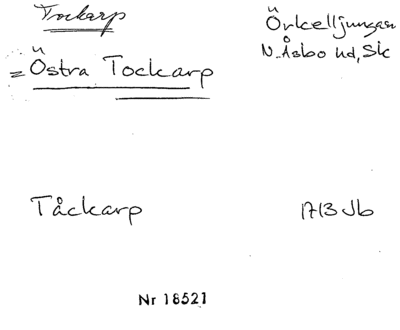 Tockarp
Örkelljunga sn
N. Åsbo hd, Sk
= Östra Tockarp
Tåckarp
1713 Jb
Nr 18521